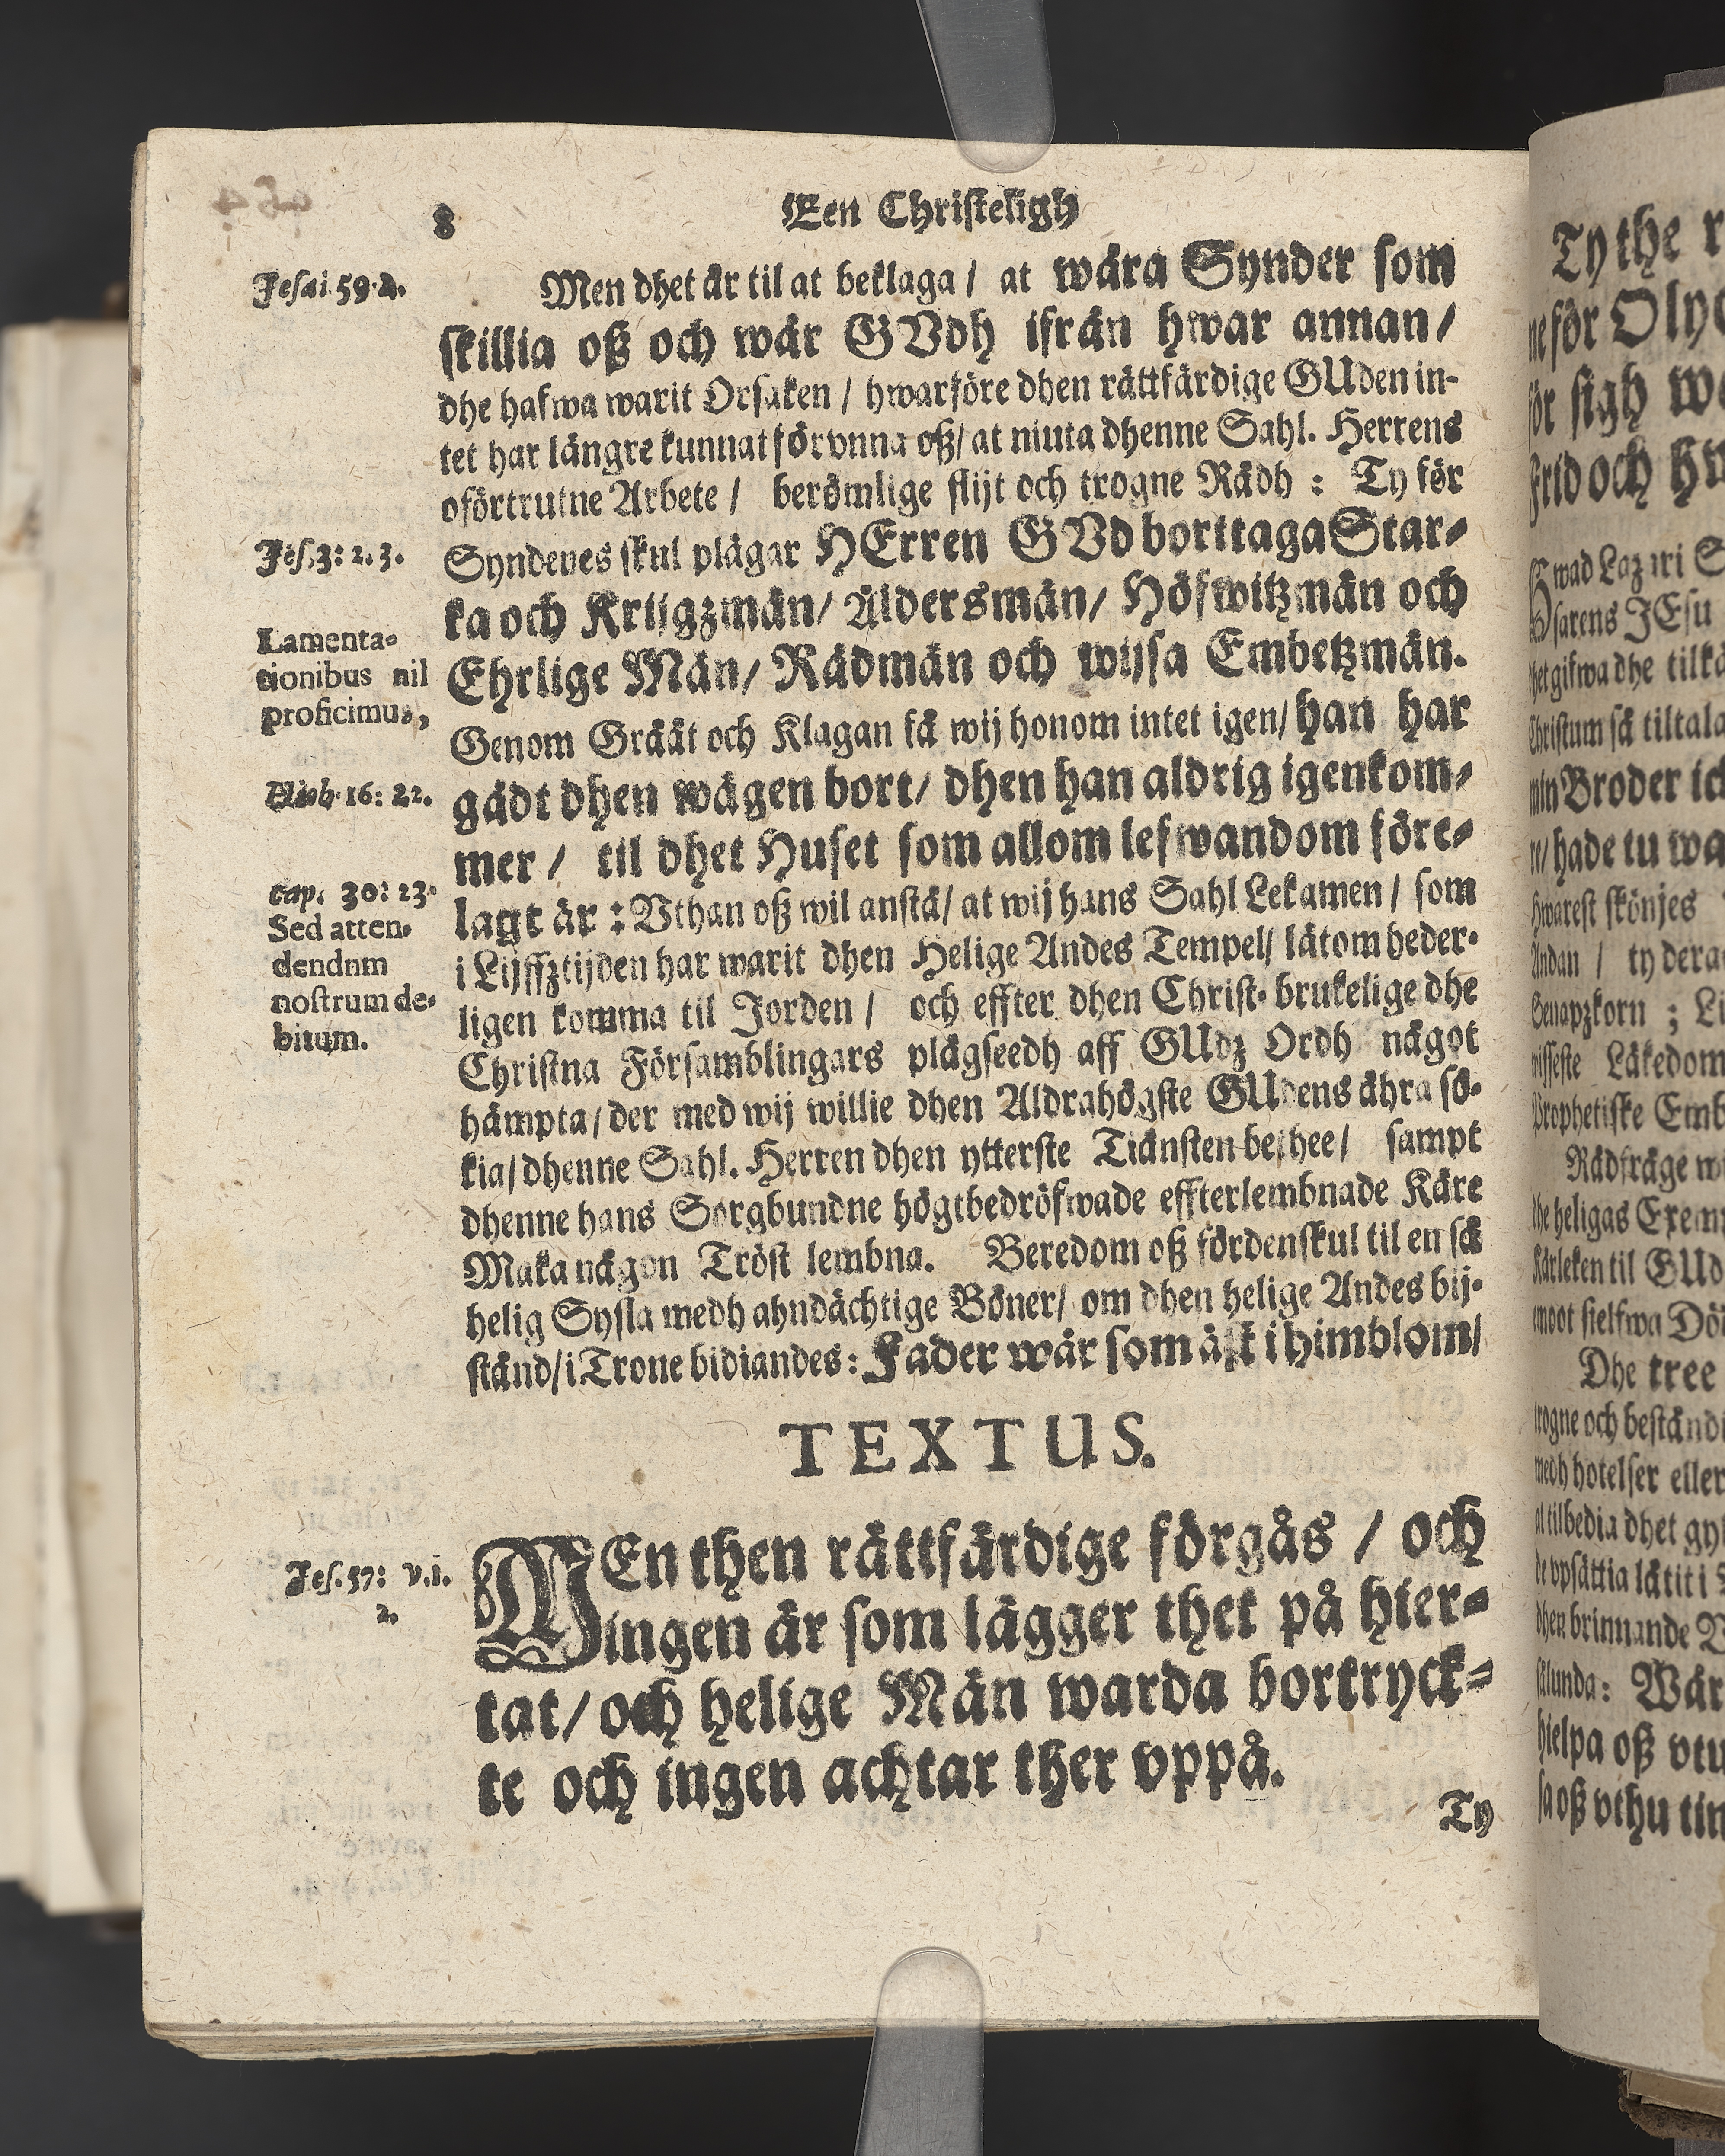 8
Een Christeligh
Jesai 59. 2.
Men dhet är til at beklaga / at wåra Synder som
skillia oß och wår GVdh ifrån hwar annan /
dhe hafwa warit Orsaken / hwarföre dhen rättfärdige GUden in-
tet har längre kunnat förvnna oß / at niuta dhenne Sahl. Herrens
oförtrutne Arbete / berömlige flijt och trogne Rådh : Ty för
Jes. 3: 2. 3.
Syndenes skul plägar HErren GVd borttaga Star-
ka och Krijgzmän / Åldersmän / Höfwitzmän och
Lamenta-
tionibus nil
proficimus,
Ehrlige Män / Rådmän och wijsa Embetzmän.
Genom Gråät och Klagan få wij honom intet igen / han har
Hiob. 16: 22.
gådt dhen wägen bort / dhen han aldrig igenkom-
mer / til dhet Huset som allom lefwandom före-
cap. 30: 23.
Sed atten-
dendum
nostrum de-
bitum.
lagt är : Vthan oß wil anstå / at wij hans Sahl Lekamen / som
i Lijffztijden har warit dhen Helige Andes Tempel / låtom heder-
ligen komma til Jorden / och effter dhen Christ-brukelige dhe
Christna Församblingars plägseedh aff GUdz Ordh något
hämpta / der med wij willie dhen Aldrahögste GUdens ähra sö-
kia / dhenne Sahl. Herren dhen ytterste Tiänsten bethee / sampt
dhenne hans Sorgbundne högtbedröfwade effterlembnade Käre
Maka någon Tröst lembna. Beredom oß fördenskul til en så
helig Sysla medh ahndächtige Böner / om dhen helige Andes bij-
stånd / i Trone bidiandes: Fader wår som äst i himblom /
TEXTUS.
Jes. 57: v. 1.
2.
MEn then rättfärdige förgås / och
ingen är som lägger thet på hier-
tat / och helige Män warda bortryck-
te och ingen achtar ther vppå.
Ty
Ty the r
ne för Oly
för sigh w
Frid och hw
Hwad Lazari S
sarens JEsu
het gifwa dhe tilkä
Christum så tiltala
min Broder ick
re / hade tu wa
hwarest skönjes
Andan / ty dera
Senapzkorn ; Li
wisseste Läkedom
Prophetiske Emb
Rådfråge w
the heligas Exem
Kärleken til GUd
emoot sielfwa Dö
Dhe tree
trogne och beständi
medh hotelser eller
at tilbedia dhet gy
de vpsättia låtit i
dhen brinnande
slunda: Wår
hielpa oß vtu
sa oß vthu tin